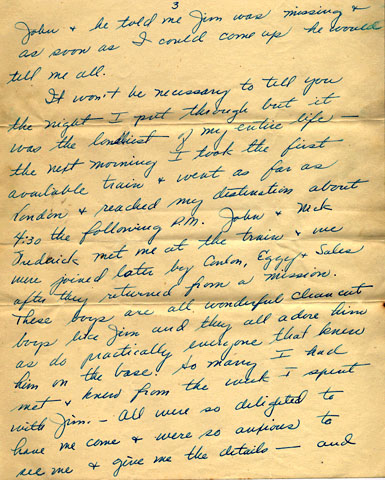 3
John & he told me Jim was missing &
as soon as I could come up he would
tell me all.
It won't be necessary to tell you
the night I put through but it
was the loneliest of my entire life –
the next morning I took the first
available train & went as far as
London & reached my destination about
4:30 the following P.M. John & Nick
Frederick met me at the train & we
were joined later by Conlon, Eggy & Sales
after they returned from a mission.
These boys are all wonderful clean cut
boys like Jim and they all adore him
as do practically everyone that knew
him on the base. So many I had
met & knew from the week I spent
with Jim. – All were so delighted to
have me come & were so anxious to
see me & give me the details – and